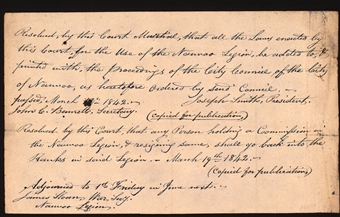 Resolved by this Court Martial, that all the Laws enacted by
this Court, for the Use of the Nauvoo Legion, be added to, &
printed with, the Proceedings of the City Council of the City
of Nauvoo, as heretofore ordered by said Council.
passed, March 1842.
Joseph Smith, President.
John C. Bennett, Secretary
(Copied for publication)
Resolved by this Court, that any Person holding a Commission in
the Nauvoo Legion, & resigning same, shall go back into the
Ranks in said Legion. March 19th 1842.
(Copied for publication)
Adjourned to 1st Friday in June next.
James Sloan, War Secy.
Nauvoo Legion.